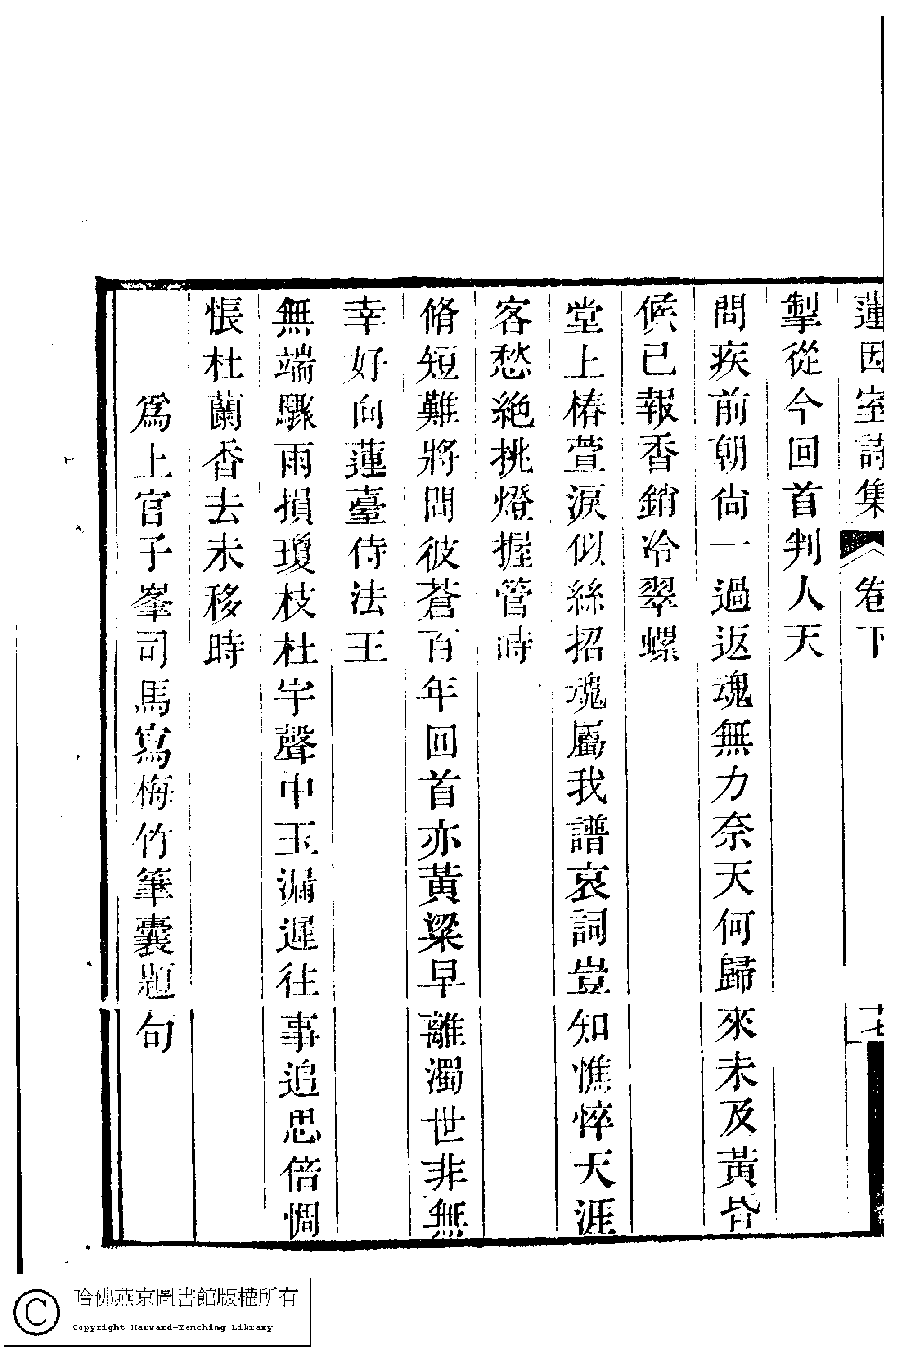 蓮因室詩集 卷下 十七
掣從今回首判人天
問疾前朝尙一過返魂無力奈天何歸來未及黃昏
候已報香銷冷翠螺
堂上椿萱淚似絲招魂屬我譜哀詞豈知憔悴天涯
客愁絕挑燈握管時
脩短難將問彼蒼百年回首亦黃粱早離濁世非無
幸好向蓮臺侍法王
無端驟雨損瓊枝杜宇聲中玉漏遲往事追思倍惆
悵杜蘭香去未移時
爲上官子峯司馬寫梅竹筆囊題句
哈佛燕京圖書館版權所有
Copyright Harvard-Yenching Library